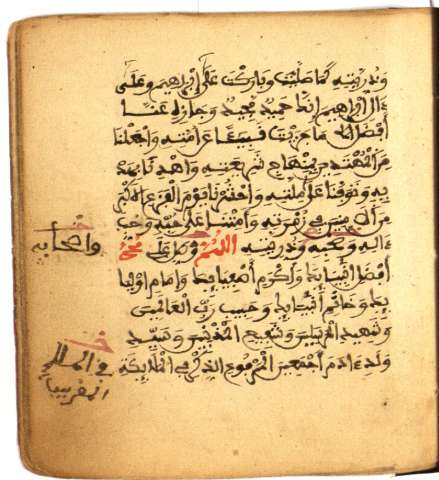 وذريته كما صليت وباركت على إبراهيم وعلى
ءال إبراهيم إنك حميد مجيد وجازه عنا
أفضل ما جزيت نبيئا عن أمته واجعلنا
من المهتدين بمنهاج شريعته واهدنا بهد
يه وتوفنا على ملته واحشرنا يوم الفزع الأكبر
من الامنين في زمرته وأمتنا على حبه وحب
ءاله وصحبه وذريته اللهم صل على محمد
وأصحابه
أفضل أنبيائك وأكرم أصفيائك وإمام أوليا
ئك وخاتم أنبيائك وحبيب رب العالمين
وشهيد المرسلين وشفيع المذنبين وسيد
ولد ءادم أجمعين المرفوع الذكر في الملائكة
في الملإ
المقربين